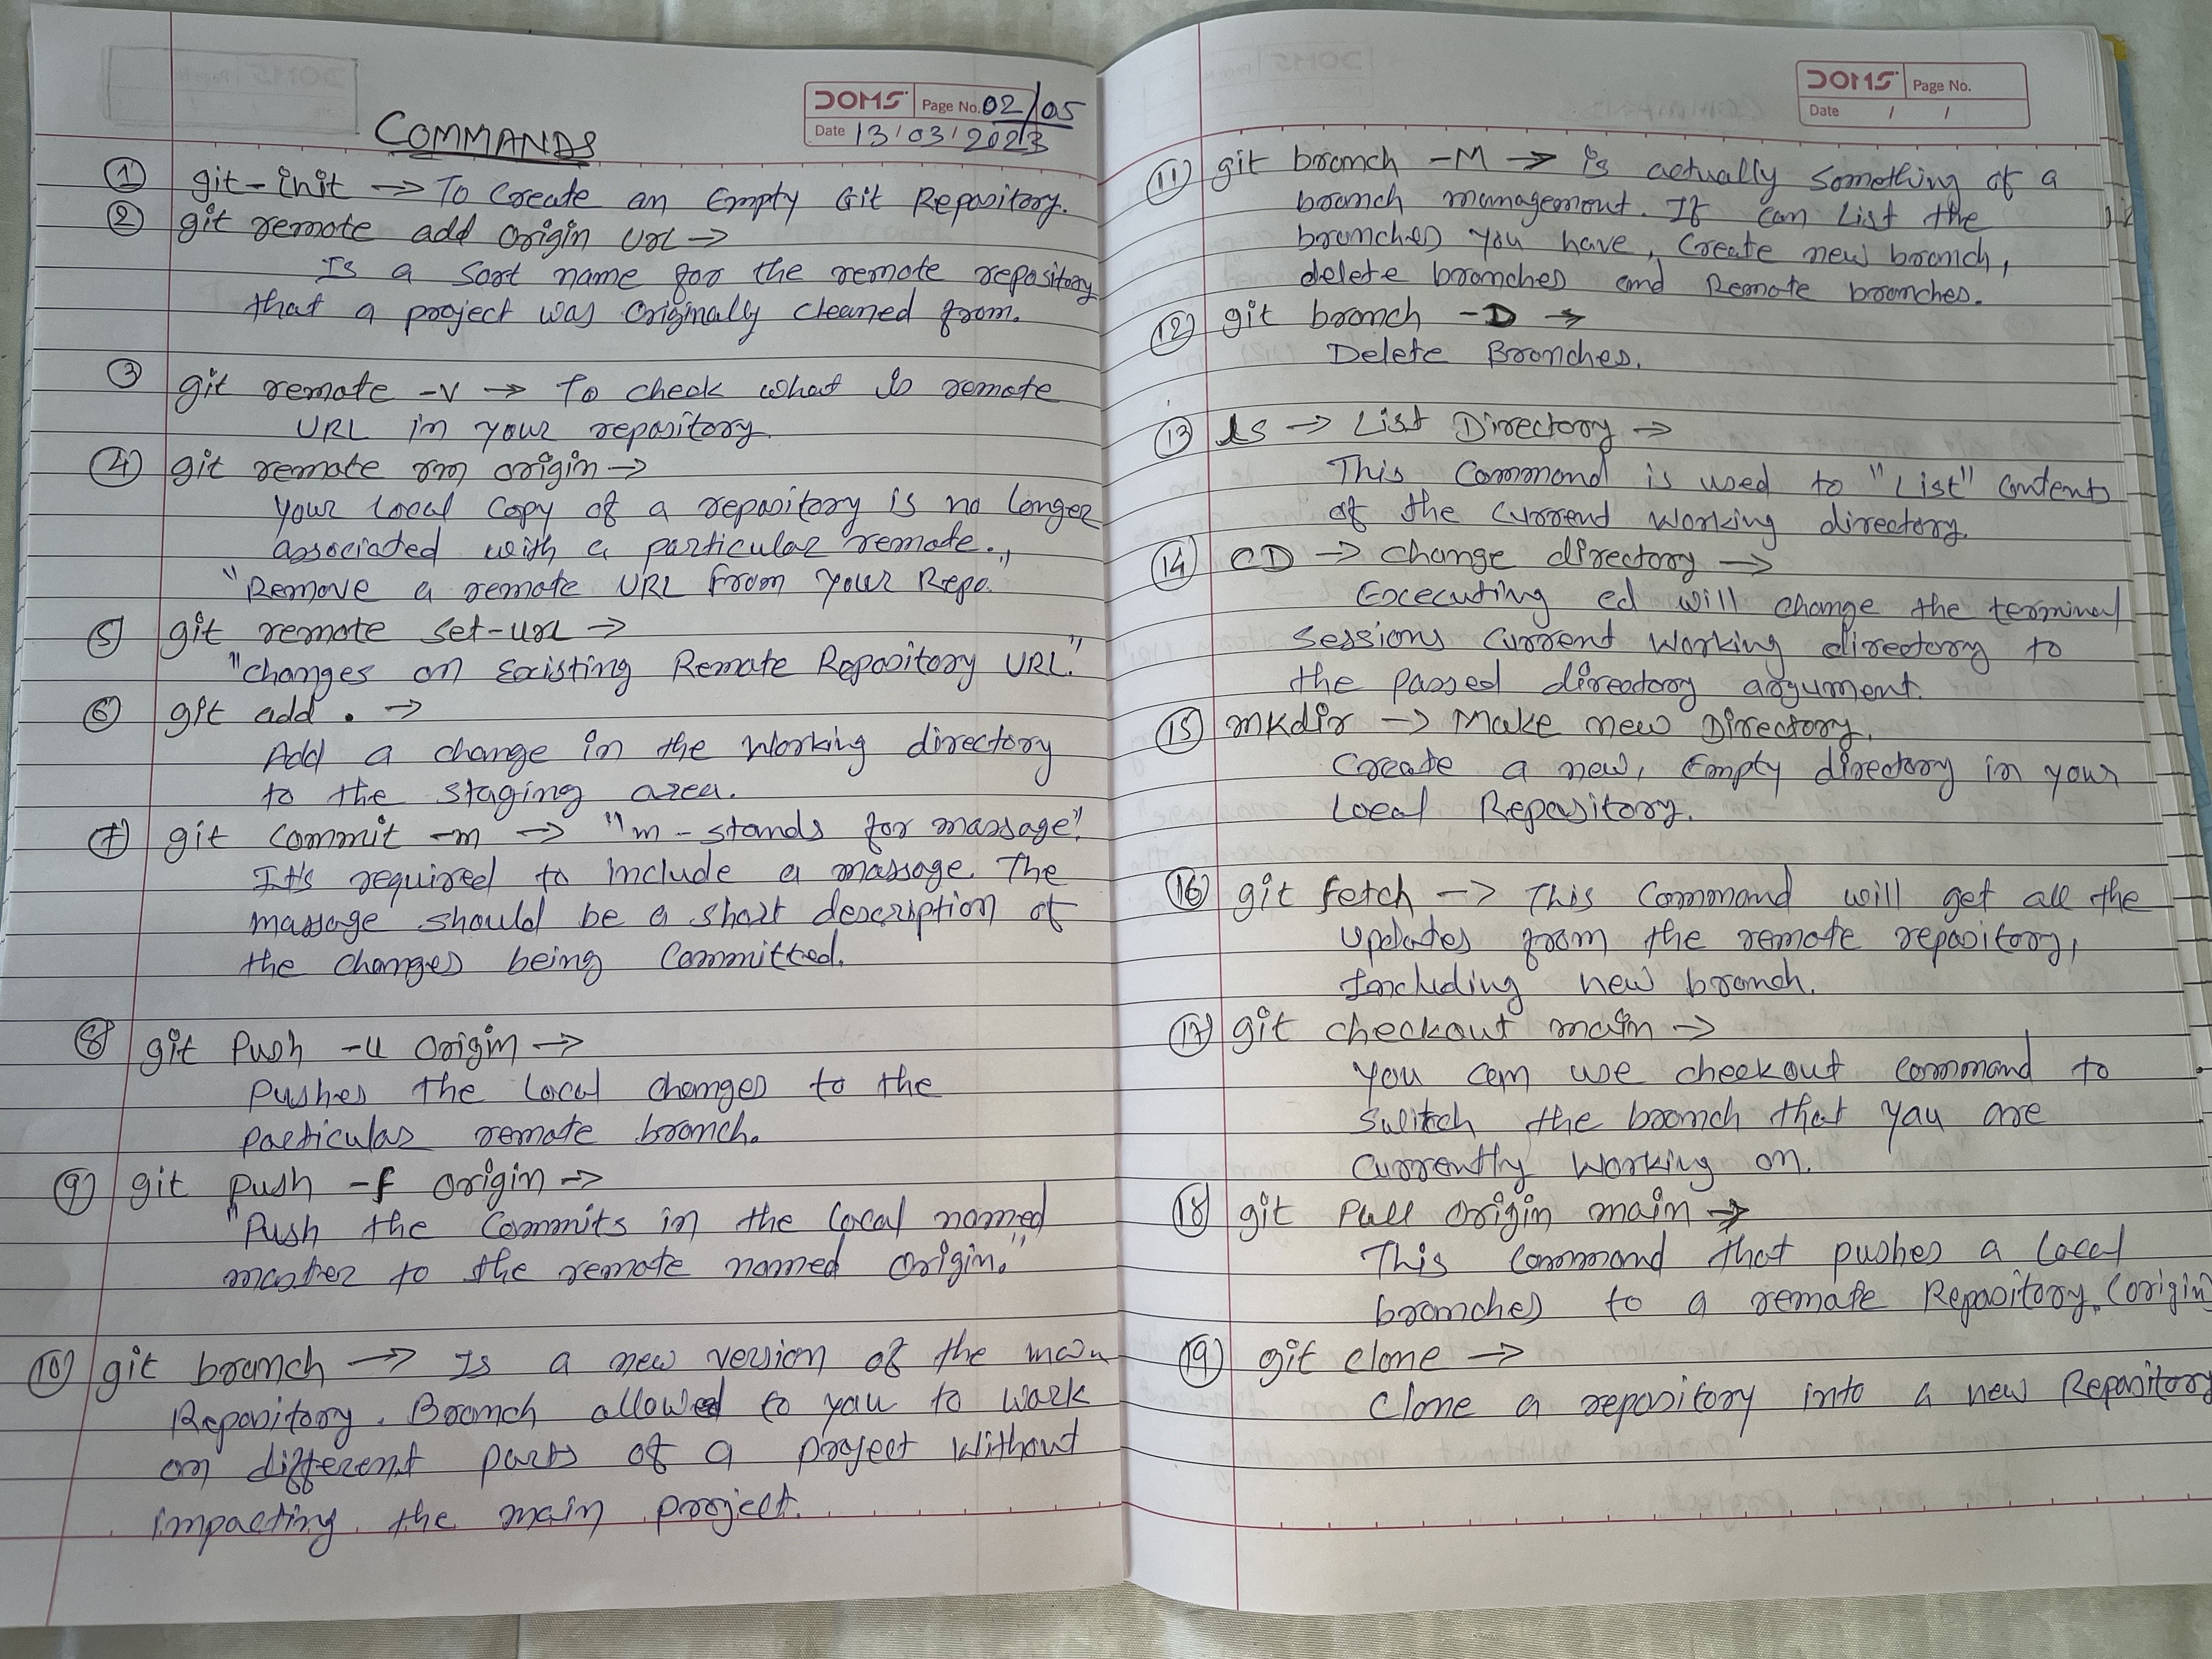 DOMS Page No. 02/05
Date 13/03/2023
COMMANDS
① git-init → To Create an Empty Git Repository.
② git remote add origin url →
Is a Sort name for the remote repository
that a project was Originally cleaned from.
③ git remote -v → To check what is remote
URL in your repository.
④ git remote rm origin →
Your Local Copy of a repository is no longer
associated with a particular remote.
"Remove a remote URL from your Repo.
⑤ git remote set-url →
"Changes an Existing Remote Repository URL."
⑥ git add . →
Add a change in the working directory
to the staging area.
⑦ git commit -m → "m - stands for massage"
It's required to include a massage. The
massage should be a short description of
the changes being Committed.
⑧ git Push -u Origin →
Pushes the Local changes to the
particular remote branch.
⑨ git push -f origin →
"Push the Commits in the local named
master to the remote named Origin."
⑩ git branch → Is a new version of the main
Repository. Branch allowed to you to work
on different parts of a project without
impacting the main project.
DOMS Page No.
Date / /
⑪ git branch -M → is actually something of a
branch management. It can List the
branches you have, Create new branch,
delete branches and Remote branches.
⑫ git branch -D →
Delete Branches.
⑬ ls → List Directory →
This Command is used to "List" Contents
of the Current Working directory.
⑭ CD → change directory →
Excecuting cd will change the terminal
sessions Current Working directory to
the passed directory argument.
⑮ mkdir → Make new Directory.
Create a new, Empty directory in your
Local Repository.
⑯ git fetch → This Command will get all the
Updates from the remote repository,
Including new branch.
⑰ git checkout main →
You can use checkout command to
Switch the branch that you are
Currently Working on.
⑱ git Pull Origin main →
This Command that pushes a Local
branches to a remote Repository. (origin)
⑲ git clone →
Clone a repository into a new Repository